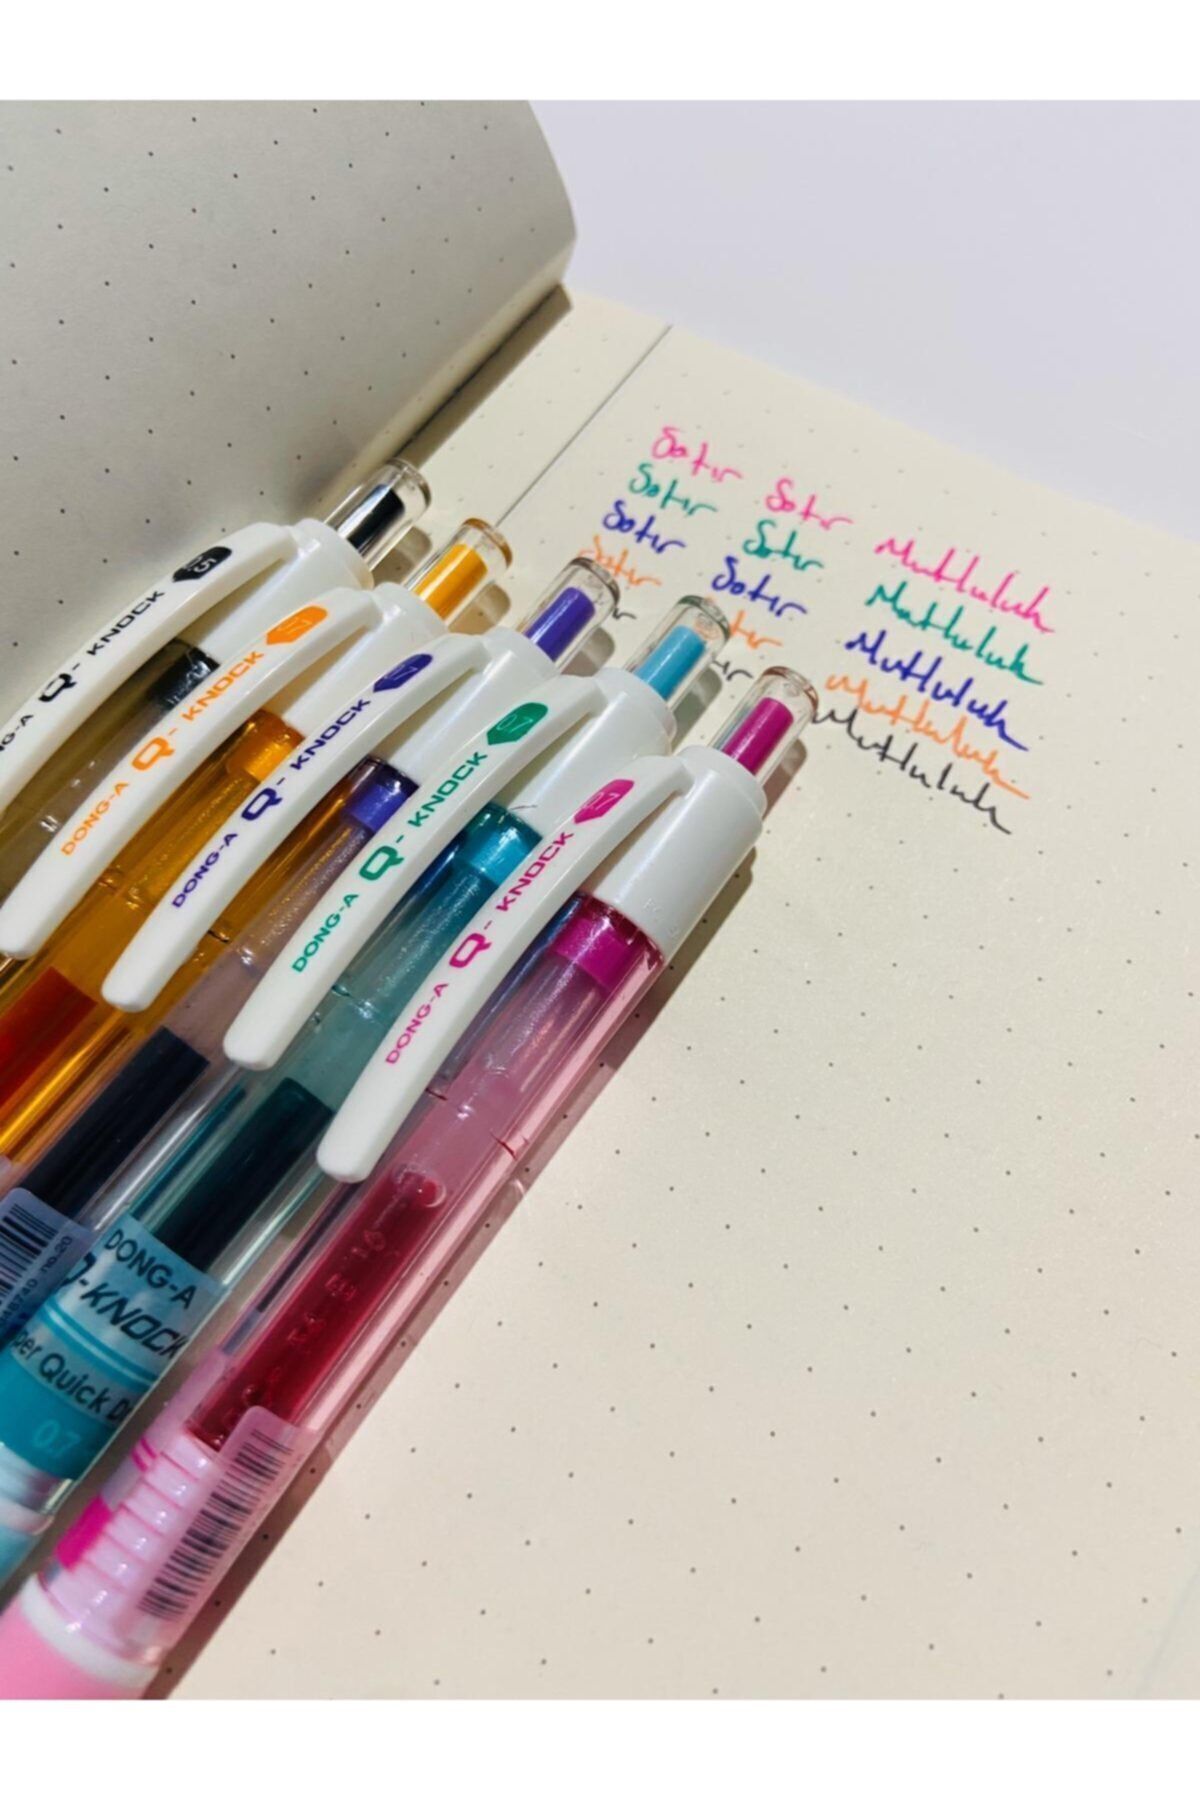 Satır Satır Mutluluk
Satır Satır Mutluluk
Satır Satır Mutluluk
Satır Mutluluk
Mutluluk
Q-KNOCK
DONG-A Q-KNOCK 0.7
DONG-A Q-KNOCK 0.7
DONG-A Q-KNOCK 0.7
DONG-A Q-KNOCK 0.7
no.20
DONG-A
Q-KNOCK
Quick
0.7